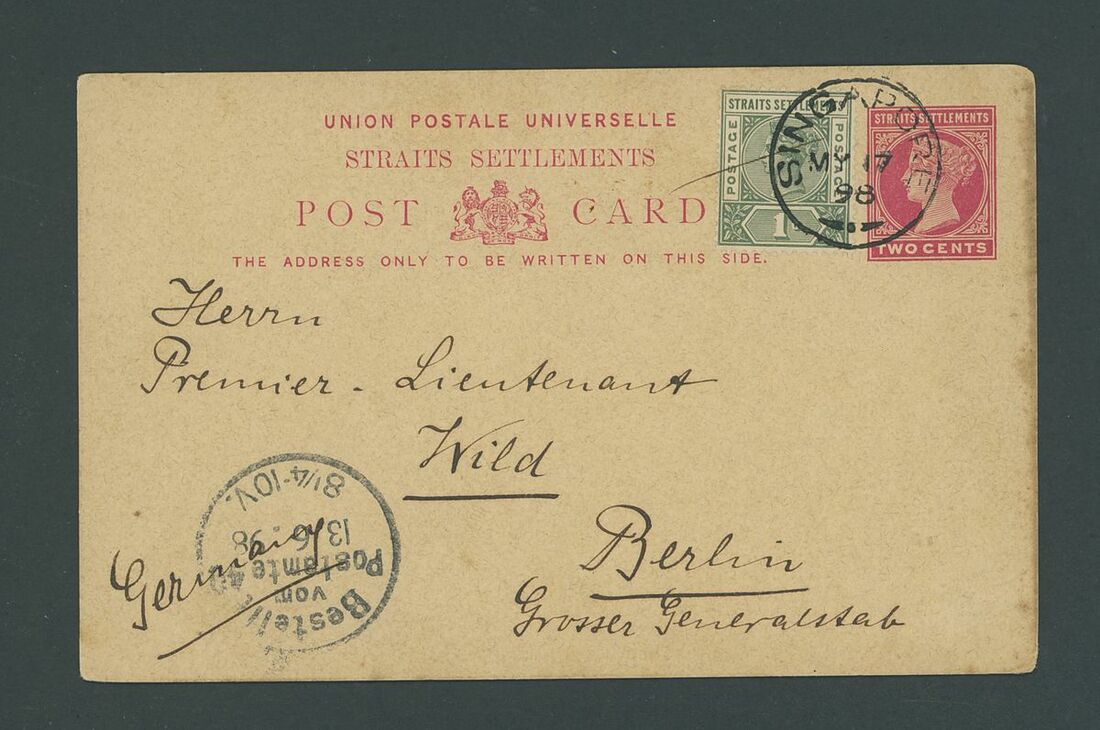 UNION POSTALE UNIVERSELLE
STRAITS SETTLEMENTS
POST CARD
THE ADDRESS ONLY TO BE WRITTEN ON THIS SIDE.
STRAITS SETTLEMENTS
POSTAGE
POSTAGE
1
SINGAPORE
MY 17
98
STRAITS SETTLEMENTS
TWO CENTS
Herrn
Premier-Lieutenant
Wild
Berlin
Grosser Generalstab
Germany
Bestellt
vom
Postamte 40
13 6 98
8 1/4-10V.